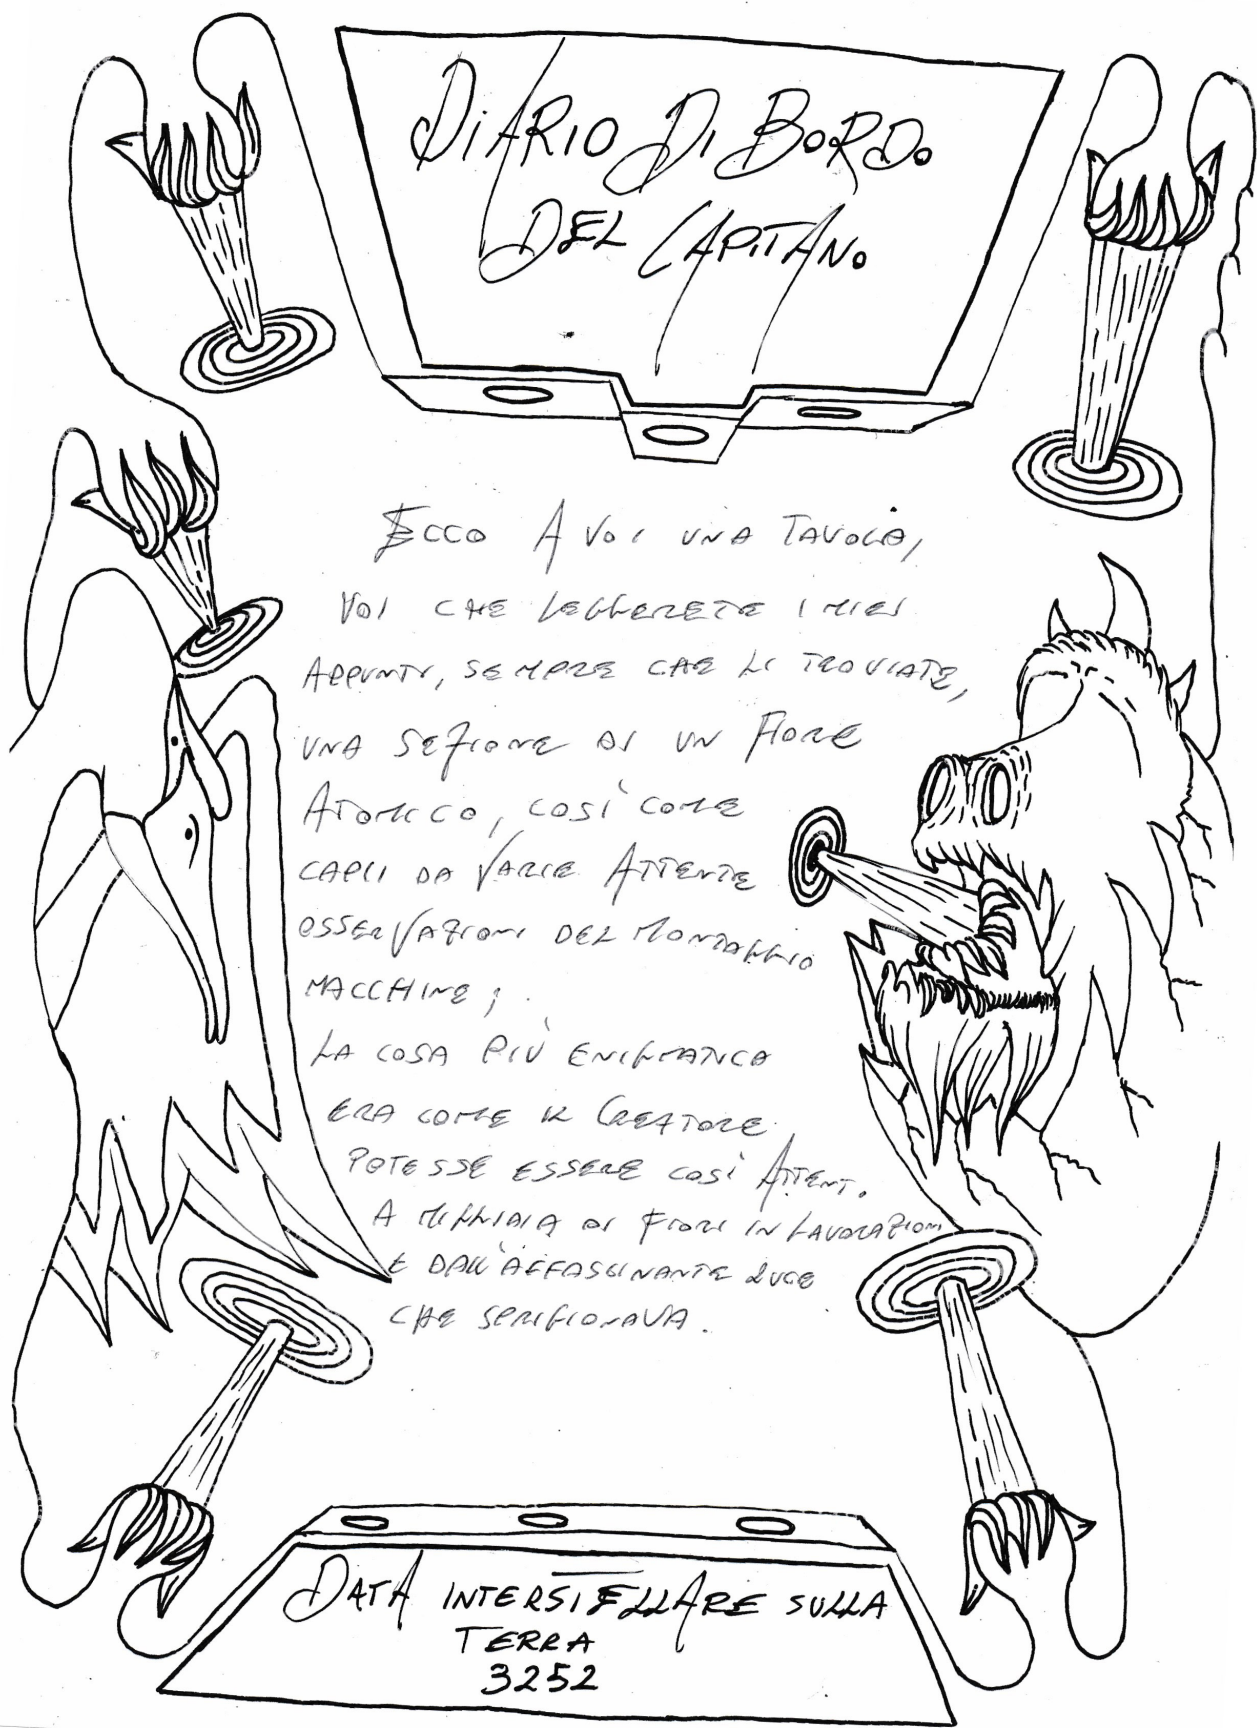 DIARIO DI BORDO
DEL CAPITANO
ECCO A VOI UNA TAVOLA,
VOI CHE LEGGERETE I MIEI
APPUNTI, SEMPRE CHE LI TROVIATE,
UNA SEZIONE DI UN FIORE
ATOMICO, COSÌ COME
CAPII DA VARIE ATTENTE
OSSERVAZIONI DEL MONTAGGIO
MACCHINE;
LA COSA PIÙ ENIGMATICA
ERA COME IL CREATORE
POTESSE ESSERE COSÌ ATTENTO
A MIGLIAIA DI FIORI IN LAVORAZIONE
E DALL'AFFASCINANTE LUCE
CHE
DATA INTERSTELLARE SULLA
TERRA
3252